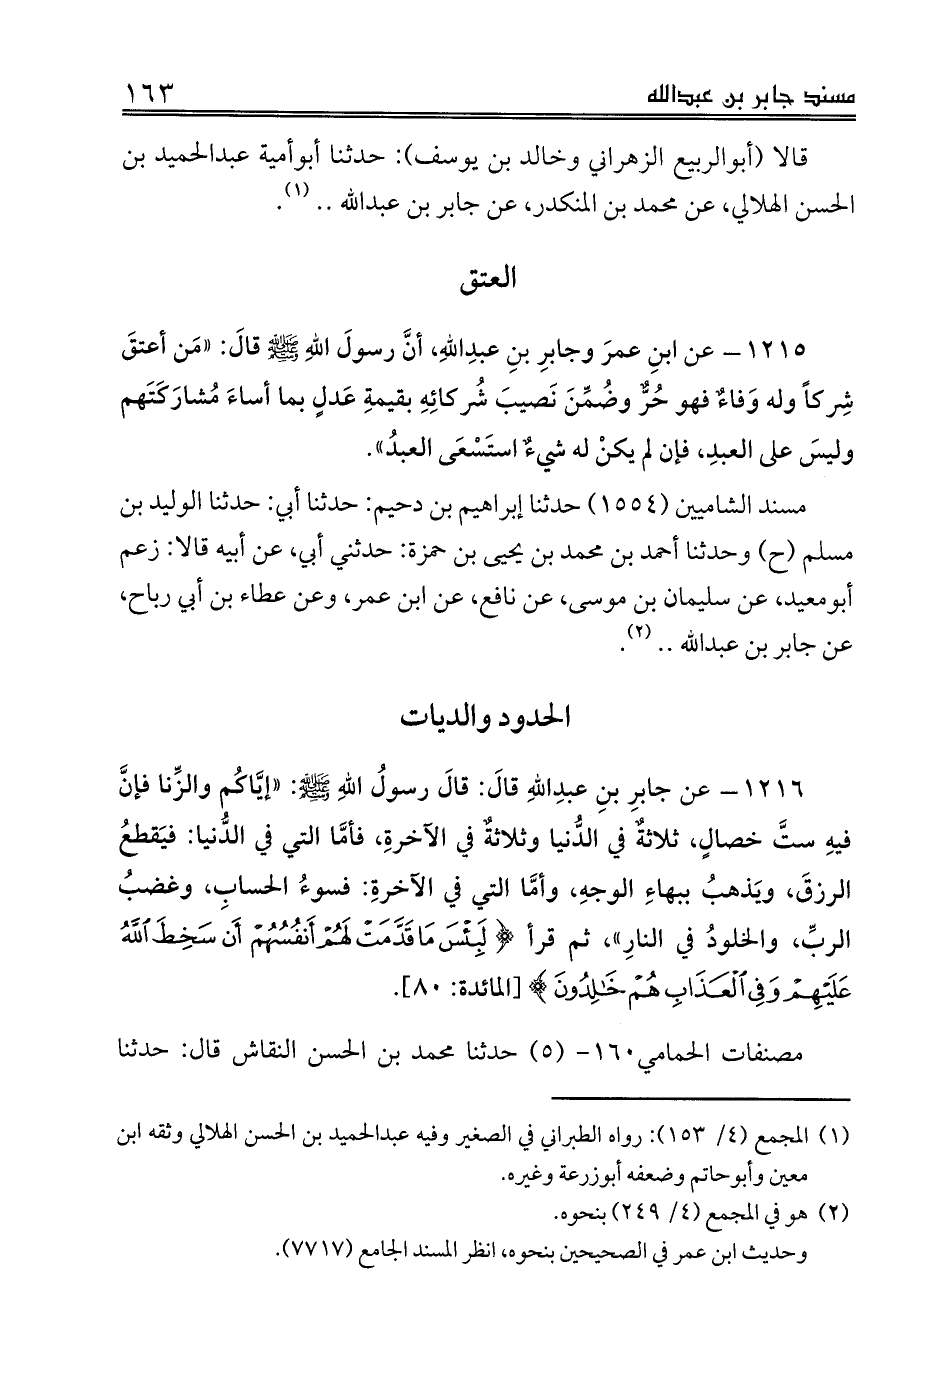 مسند جابر بن عبدالله ١٦٣
قالا (أبوالربيع الزهراني وخالد بن يوسف): حدثنا أبوأمية عبدالحميد بن
الحسن الهلالي، عن محمد بن المنكدر، عن جابر بن عبدالله .. (١).
العتق
١٢١٥ – عن ابنِ عمرَ وجابرِ بنِ عبدِاللهِ، أنَّ رسولَ اللهِ ﷺ قالَ: «مَن أعتقَ
شِركاً وله وَفاءٌ فهو حُرٌّ وضُمِّنَ نَصيبَ شُركائِهِ بقيمةِ عَدلٍ بما أساءَ مُشارَكَتَهم
وليسَ على العبدِ، فإن لم يكنْ له شيءٌ استَسْعَى العبدُ».
مسند الشاميين (١٥٥٤) حدثنا إبراهيم بن دحيم: حدثنا أبي: حدثنا الوليد بن
مسلم (ح) وحدثنا أحمد بن محمد بن يحيى بن حمزة: حدثني أبي، عن أبيه قالا: زعم
أبومعيد، عن سليمان بن موسى، عن نافع، عن ابن عمر، وعن عطاء بن أبي رباح،
عن جابر بن عبدالله .. (٢).
الحدود والديات
١٢١٦ – عن جابرِ بنِ عبدِاللهِ قالَ: قالَ رسولُ اللهِ ﷺ: «إيَّاكُم والزِّنا فإنَّ
فيهِ ستَّ خصالٍ، ثلاثةٌ في الدُّنيا وثلاثةٌ في الآخرةِ، فأمَّا التي في الدُّنيا: فيَقطعُ
الرزقَ، ويَذهبُ ببهاءِ الوجهِ، وأمَّا التي في الآخرةِ: فسوءُ الحسابِ، وغضبُ
الربِّ، والخلودُ في النارِ»، ثم قرأ ﴿ لَبِئْسَ مَا قَدَّمَتْ لَهُمْ أَنفُسُهُمْ أَن سَخِطَ ٱللَّهُ
عَلَيْهِمْ وَفِي ٱلْعَذَابِ هُمْ خَٰلِدُونَ ﴾ [المائدة: ٨٠].
مصنفات الحمامي١٦٠- (٥) حدثنا محمد بن الحسن النقاش قال: حدثنا
(١) المجمع (٤/ ١٥٣): رواه الطبراني في الصغير وفيه عبدالحميد بن الحسن الهلالي وثقه ابن
معين وأبوحاتم وضعفه أبوزرعة وغيره.
(٢) هو في المجمع (٤/ ٢٤٩) بنحوه.
وحديث ابن عمر في الصحيحين بنحوه، انظر المسند الجامع (٧٧١٧).